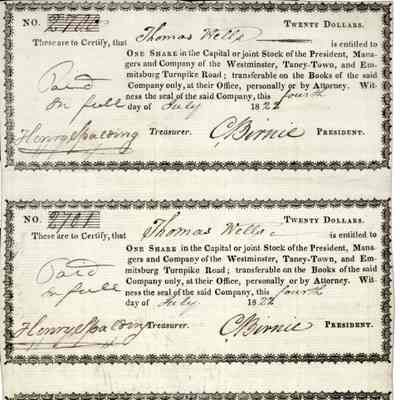 NO. 2700 TWENTY DOLLARS.
These are to Certify, that Thomas Wells is entitled to
ONE SHARE in the Capital or joint Stock of the President, Mana-
gers and Company of the Westminster, Taney-Town, and Em-
mitsburg Turnpike Road; transferable on the Books of the said
Company only, at their Office, personally or by Attorney. Wit-
ness the seal of the said Company, this fourth
day of July 1822
Paid
in full
Henry Spalding Treasurer. C. Birnie PRESIDENT.
NO. 2701 TWENTY DOLLARS.
These are to Certify, that Thomas Wells is entitled to
ONE SHARE in the Capital or joint Stock of the President, Mana-
gers and Company of the Westminster, Taney-Town, and Em-
mitsburg Turnpike Road; transferable on the Books of the said
Company only, at their Office, personally or by Attorney. Wit-
ness the seal of the said Company, this fourth
day of July 1822
Paid
in full
Henry Spalding Treasurer. C. Birnie PRESIDENT.